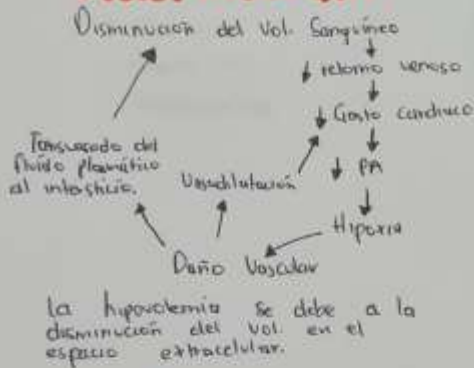 Disminución del Vol. Sanguíneo
↓ retorno venoso
↓ Gasto cardiaco
↓ PA
Hipoxia
Daño Vascular
Vasodilatación
Transvasado del
fluido plasmático
al intersticio.
La hipovolemia se debe a la
disminución del vol. en el
espacio extracelular.